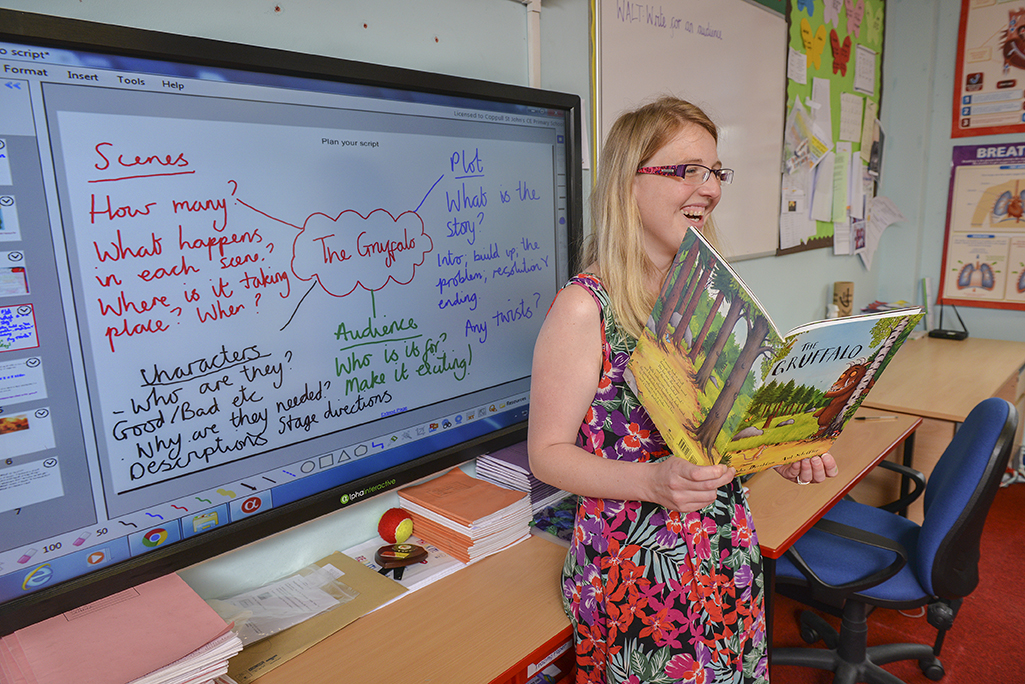 o script*
Format Insert Tools Help
Plan your script
Scenes
How many?
What happens
in each scene?
Where is it taking
place? When?
The Gruffalo
Plot
What is the
story?
Intro, build up, the
problem, resolution &
ending.
Any twists?
Audience
Who is it for?
Make it exciting!
Characters
- Who are they?
Good/Bad etc
- Why are they needed?
Descriptions Stage directions
6
7
100 50
alphainteractive
WALT: Write for an audience
THE
GRUFFALO
BREAT